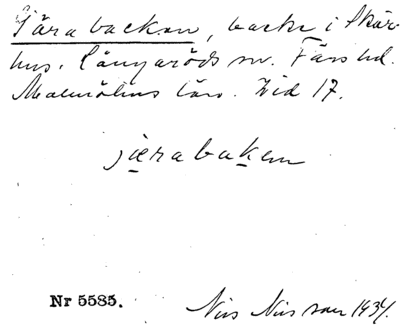 Järabacken, backe i Skår-
hus. Långaröds sn. Färs hd.
Malmöhus län. Zid 17.
jærabakeṇ
Nr 5585.
Nils Nilsson 1934.